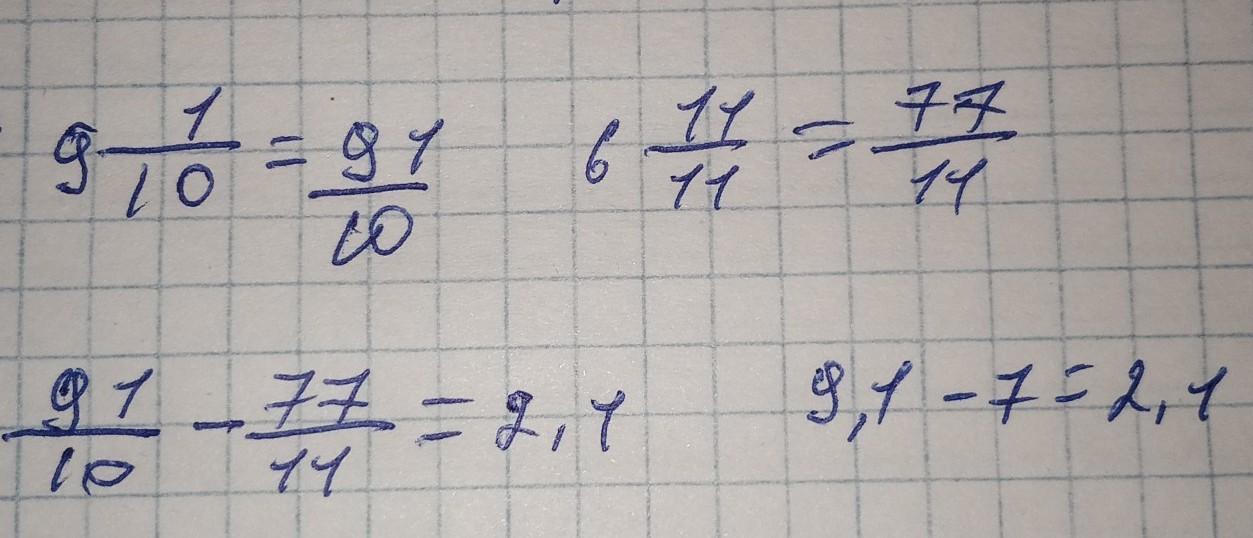 9 1/10 = 91/10 6 11/11 = 77/11
91/10 - 77/11 = 2,1 9,1 - 7 = 2,1